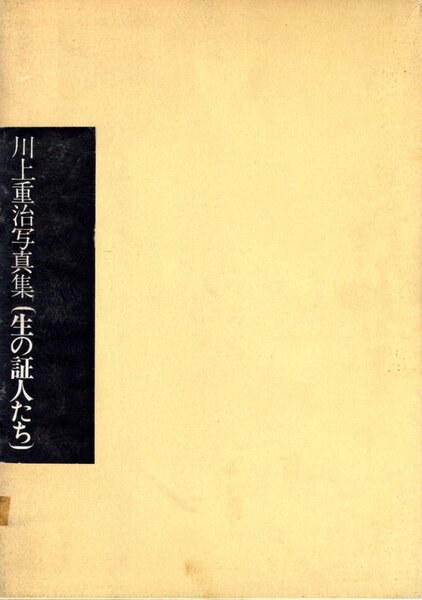 川上重治写真集(生の証人たち)